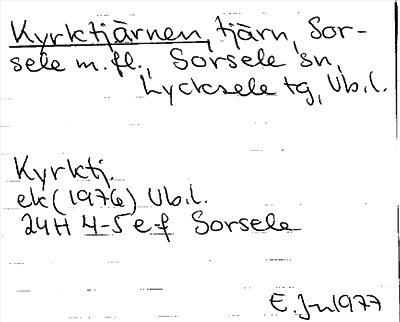 Kyrktjärnen, tjärn, Sor-
sele m.fl., Sorsele sn,
Lycksele tg, Vb.l.
Kyrktj.
ek (1976) Vb.l.
24H 4-5 e-f Sorsele
E. J-n 1977